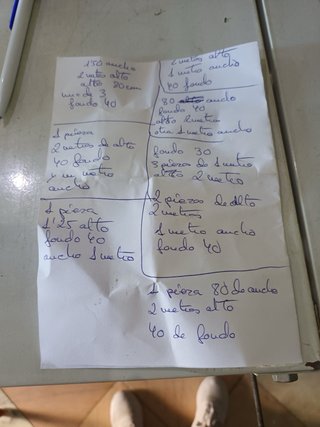 150 ancho
2 metro alto
alto 80 cm
mide 3
fondo 40
1 pieza
2 metros de alto
40 fondo
1 metro
ancho
1 pieza
1'25 alto
fondo 40
ancho 1 metro
2 metros alto
1 metro ancho
40 fondo
80 ancho
fondo 40
alto 2 metro
otra 1 metro ancho
fondo 30
3 piezas de 1 metro
alto 2 metro
2 piezas de alto
2 metros
1 metro ancho
fondo 40
1 pieza 80 de ancho
2 metros alto
40 de fondo